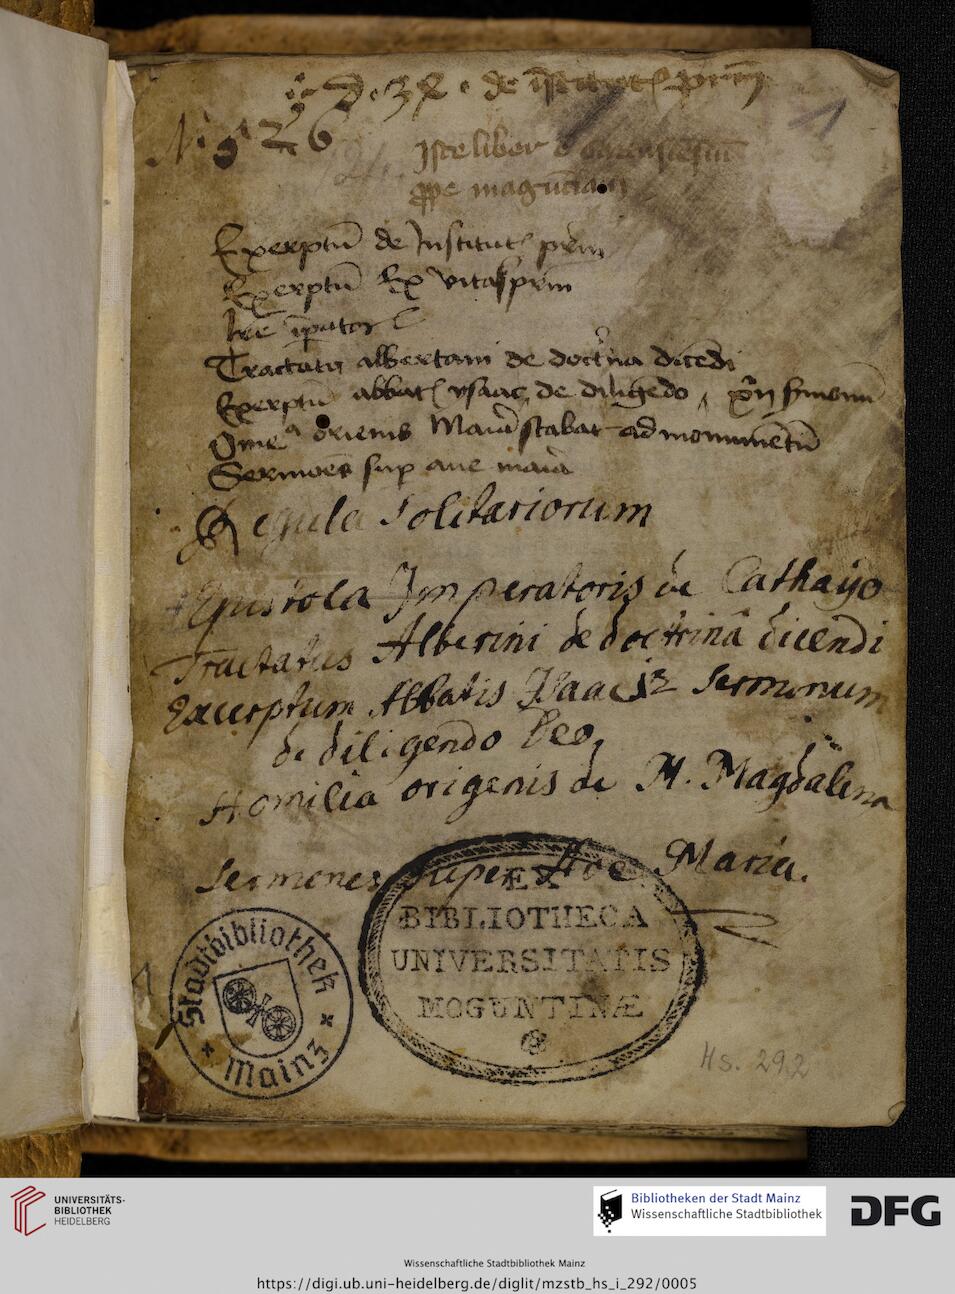 de institut prim
N. 9 26
1
Iste liber
ppe magunciam
Exerptū de Institut prim
Exerptū Ex vitasprim
Tractatus albertani de doctrina dicēdi
Exerptū abbat ysaac de diligēdo
Omelia origenis Maria stabat ad monumētū
Sermoēs sup aue maria
Regula Solitariorum
Epistola Imperatoris de Cathayo
Tractatus Alberini de doctrinâ dicendi
Excerptum Abbatis Isaac 12 Sermonum
de diligendo Deo,
Homilia origenis de M. Magdalena
Sermones super Ave Maria.
EX
BIBLIOTHECA
UNIVERSITATIS
MOGUNTINÆ
Stadtbibliothek
Mainz
Hs. 292
UNIVERSITÄTS-
BIBLIOTHEK
HEIDELBERG
Bibliotheken der Stadt Mainz
Wissenschaftliche Stadtbibliothek
DFG
Wissenschaftliche Stadtbibliothek Mainz
https://digi.ub.uni-heidelberg.de/diglit/mzstb_hs_i_292/0005